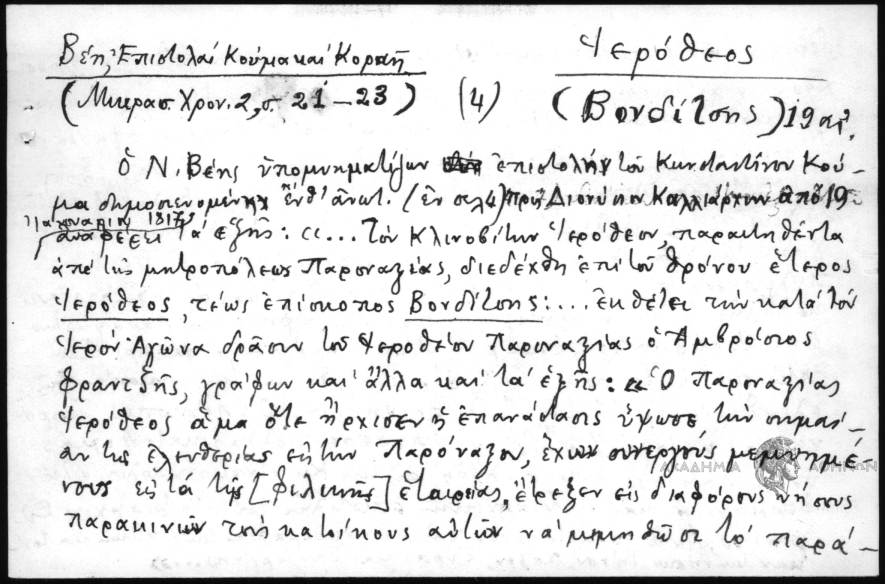 Βέη, Ἐπιστολαί Κούμα καί Κοραῆ
(Μικρασ Χρον. 2, σ. 21-23) (4)
Ἱερόθεος
(Βονδίτσης) 19 αἰ.
ὁ Ν. Βέης ὑπομνηματίζων ἐπιστολήν τοῦ Κωνσταντίνου Κού-
μα δημοσιευομένην ἔνθ' ἀνωτ. (ἐν σελ 4) πρός Διονύσιον Καλλιάρχην ἀπό 19
Ἰανουαρίου 1817,
ἀναφέρει τά ἑξῆς: «... Τόν Κλινοβίτην Ἱερόθεον, παραιτηθέντα
ἀπό τῆς μητροπόλεως Παροναξίας, διεδέχθη ἐπί τοῦ θρόνου ἕτερος
Ἱερόθεος, τέως ἐπίσκοπος Βονδίτσης: ... ἐκθέτει τήν κατά τόν
Ἱερόν Ἀγῶνα δρᾶσιν τοῦ Ἱεροθέου Παροναξίας ὁ Ἀμβρόσιος
Φραντζῆς, γράφων καί ἄλλα καί τά ἑξῆς: «Ὁ Παροναξίας
Ἱερόθεος ἅμα ὅτε ἤρχισεν ἡ ἐπανάστασις ὕψωσε τήν σημαί-
αν τῆς ἐλευθερίας εἰς τήν Παρόναξον, ἔχων συνεργούς μεμυημέ-
νους εἰς τά τῆς [Φιλικῆς] ἑταιρείας, ἔτρεξεν εἰς διαφόρους νήσους
παρακινῶν τούς κατοίκους αὐτῶν νά μιμηθῶσι τό παρά-
ΑΚΑΔΗΜΙΑ ΑΘΗΝΩΝ